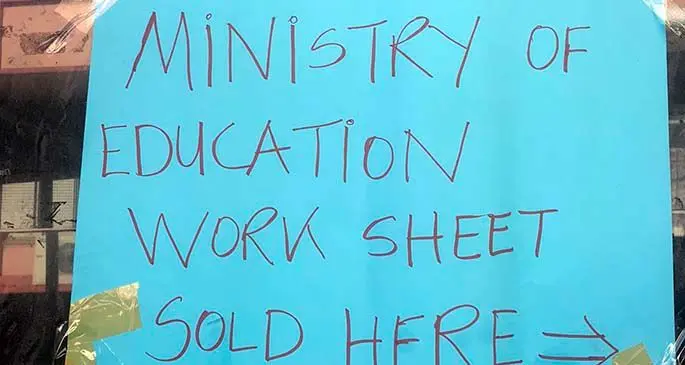 MiNiSTRY OF
EDUCATiON
WORK SHEET
SOLD HERE ⇒